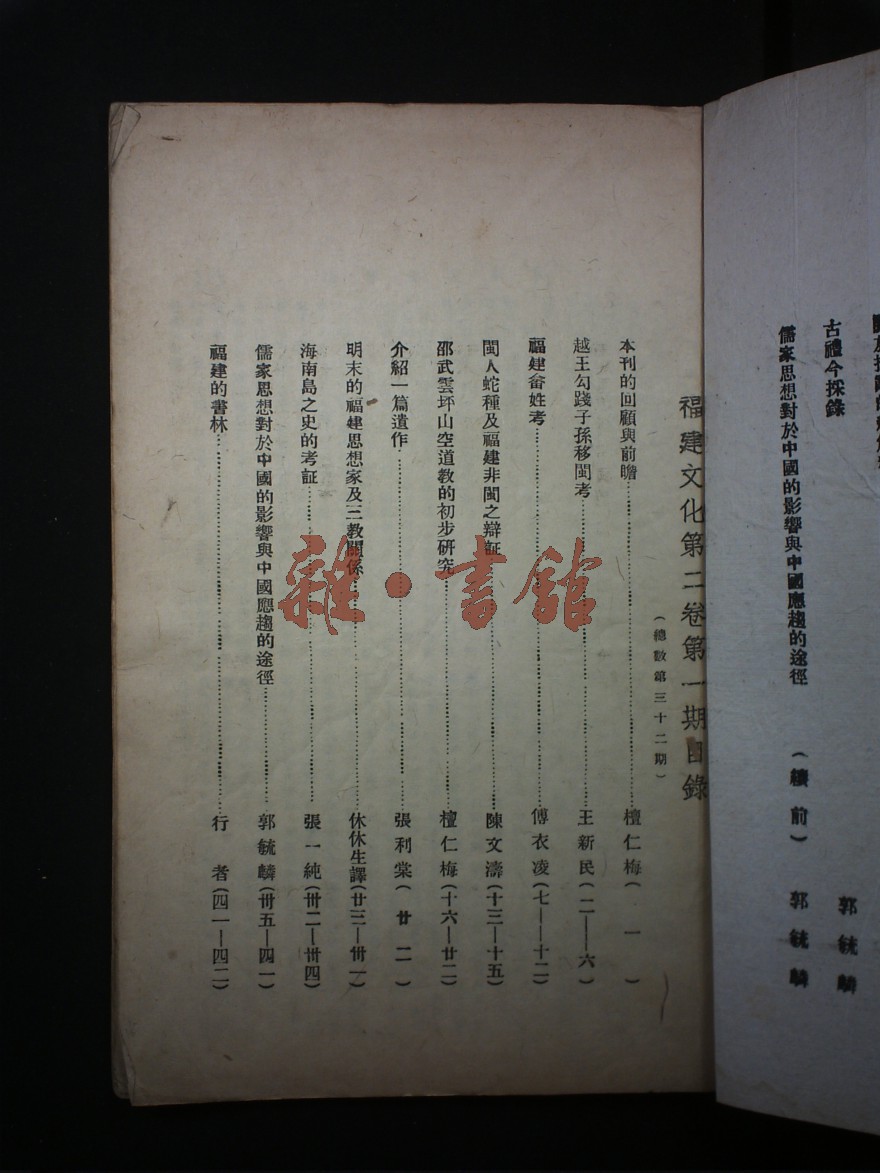 古禮今採錄
郭毓麟
儒家思想對於中國的影響與中國應趨的途徑 (續前) 郭毓麟
福建文化第二卷第一期目錄
(總數第三十二期)
本刊的回顧與前瞻……檀仁梅(一)
越王勾踐子孫移閩考……王新民(二——六)
福建畲姓考……傅衣凌(七——十二)
閩人蛇種及福建非閩之辯証……陳文濤(十三—十五)
邵武雲坪山空道教的初步研究……檀仁梅(十六—廿二)
介紹一篇遺作……張利棠(廿二)
明末的福建思想家及三教關係……休休生譯(廿三—卅一)
海南島之史的考証……張一純(卅二—卅四)
儒家思想對於中國的影響與中國應趨的途徑……郭毓麟(卅五—四一)
福建的書林……行者(四一—四二)
雜·書館